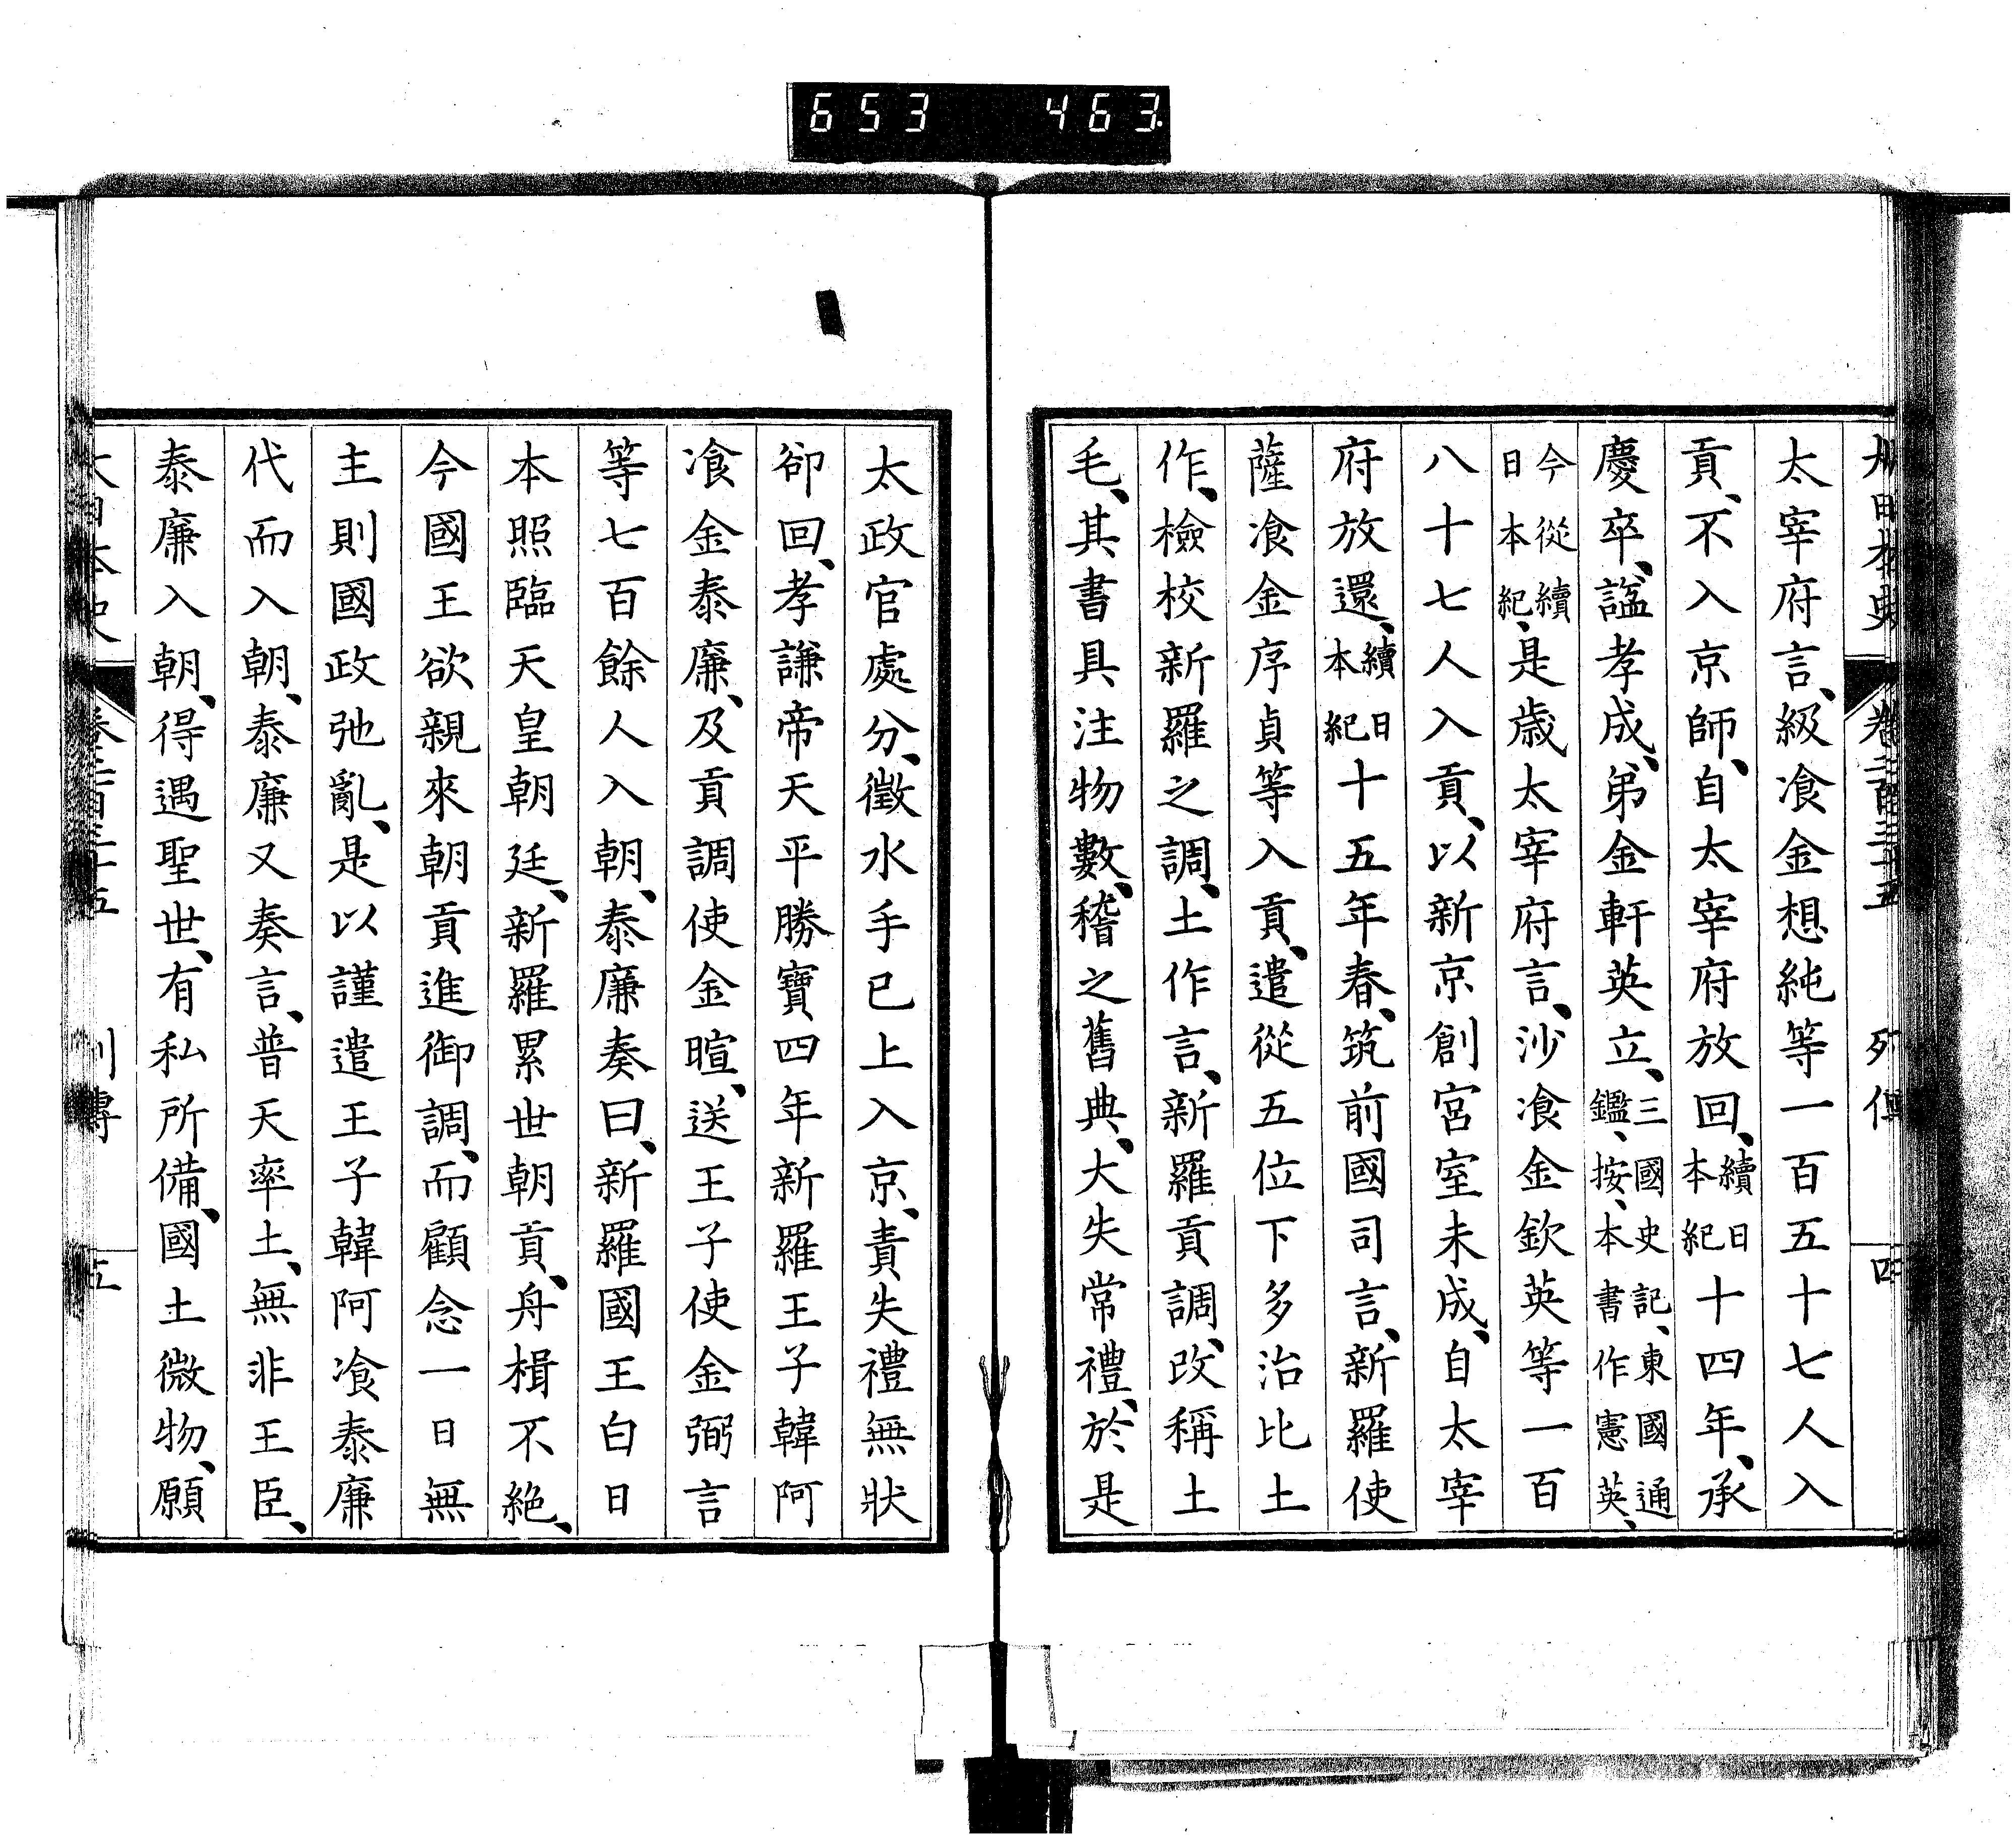 653 463
大日本史 卷二百三十五 列傳 四
太宰府言、級飡金想純等一百五十七人入
貢、不入京師、自太宰府放回、續日本紀十四年、承
慶卒、謚孝成、弟金軒英立、三國史記、東國通鑑、按、本書作憲英、
今從續日本紀、是歳太宰府言、沙飡金欽英等一百
八十七人入貢、以新京創宮室未成、自太宰
府放還、續日本紀十五年春、筑前國司言、新羅使
薩飡金序貞等入貢、遣從五位下多治比土
作、檢校新羅之調、土作言、新羅貢調、改稱土
毛、其書具注物數、稽之舊典、大失常禮、於是
太政官處分、徵水手已上入京、責失禮無狀
卻回、孝謙帝天平勝寶四年新羅王子韓阿
飡金泰廉、及貢調使金暄、送王子使金弼言
等七百餘人入朝、泰廉奏曰、新羅國王白日
本照臨天皇朝廷、新羅累世朝貢、舟楫不絶、
今國王欲親來朝貢進御調、而顧念一日無
主則國政弛亂、是以謹遣王子韓阿飡泰廉
代而入朝、泰廉又奏言、普天率土、無非王臣、
泰廉入朝、得遇聖世、有私所備、國土微物、願
大日本史 卷二百三十五 列傳 五